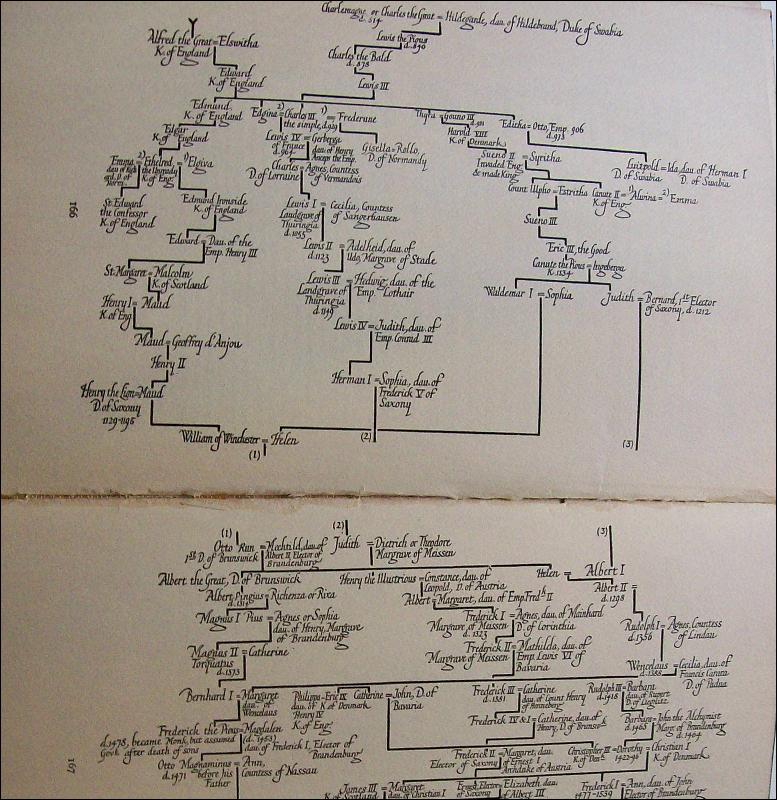 Charlemagne or Charles the Great = Hildegarde, dau. of Hildebrand, Duke of Swabia
d. 814
Lewis the Pious
d. 840
Charles the Bald
d. 878
Lewis III
Alfred the Great = Elswitha
K. of England
Edward
K. of England
Edmund
K. of England
Edgina = 2) Charles III 1) = Frederune
the simple, d. 929
Thyra = Gormo III
d. 931
Harold VIII
K. of Denmark
Editha = Otto, Emp. 906
d. 973
Edgar
K. of England
Lewis IV = Gerberga
of France
d. 964
dau. of Henry
Anceps the Emp.
Gisella = Rollo,
D. of Normandy
Sueno II = Syritha
Invaded Eng.
& made King
Luitpold = Ida, dau. of Herman I
D. of Swabia
D. of Swabia
Emma = 2) Ethelred = 1) Elgiva
the Unready
K. of Eng.
Charles = Agnes, Countess
D. of Lorraine
of Vermandois
Count Ulpho = Estritha
Canute II = 1) Alwina = 2) Emma
K. of Eng.
St. Edward
the Confessor
K. of England
Edmund Ironside
K. of England
Lewis I = Cecilia, Countess
Landgrave of
Thuringia
d. 1055
of Sangerhausen
Sueno III
Edward = Dau. of the
Emp. Henry III
Lewis II = Adelheid, dau. of
d. 1123
Udo, Margrave of Stade
Eric III, the Good
Canute the Pious = Ingeberga
K. 1134
St. Margaret = Malcolm
K. of Scotland
Lewis III = Hedwig, dau. of the
Landgrave of
Thuringia
d. 1149
Emp. Lothair
Waldemar I = Sophia
Judith = Bernard, 1st Elector
of Saxony, d. 1212
Henry I = Maud
K. of Eng
Lewis IV = Judith, dau. of
Emp. Conrad III
Maud = Geoffrey d'Anjou
Henry II
Herman I = Sophia, dau. of
Frederick V of
Saxony
Henry the Lion = Maud
D. of Saxony
1129-1195
William of Winchester = Helen
(1)
(2)
(3)
166
(1)
(2)
(3)
Otto
1st D. of Brunswick
= Mechtild, dau. of
Albert II, Elector of
Brandenburg
Judith = Dietrich or Theodore
Margrave of Meissen
Albert the Great, D. of Brunswick
Henry the Illustrious = Constance, dau. of
Leopold, D. of Austria
Helen = Albert I
Albert Pinguis = Richenza or Rixa
d. 1318
Albert = Margaret, dau. of Emp. Fredk. II
Albert II =
d. 1298
Magnus I Pius = Agnes or Sophia
dau. of Henry, Margrave
of Brandenburg
Frederick I = Agnes, dau. of Mainhard
Margrave of Meissen
d. 1323
D. of Corinthia
Rudolph I = Agnes, Countess
d. 1356
of Lindau
Magnus II = Catherine
Torquatus
d. 1373
Frederick II = Mathilda, dau. of
Margrave of Meissen
Emp. Lewis VI of
Bavaria
Wenceslaus = Cecilia, dau. of
d. 1388
Francis Carrara
D. of Padua
Bernhard I = Margaret
dau. of
Wenceslaus
Philippa = Eric IX
dau. of
Henry IV
K. of Eng.
K. of Denmark
Catherine = John, D. of
Bavaria
Frederick III = Catherine
d. 1381
dau. of Count Henry
of Henneberg
Rudolph III = Barbara
d. 1418
dau. of Rupert
D. of Liegnitz
Frederick the Pious = Magdalen
d. 1478, became Monk, but assumed
Govt. after death of sons
dau. of Frederick I, Elector of
Brandenburg
Frederick IV & I = Catherine, dau. of
Henry, D. of Brunswk.
Barbara = John the Alchymist
d. 1465
Marg. of Brandenburg
d. 1464
Otto Magnanimus = Ann,
d. 1471
before his
Father
Countess of Nassau
Frederick II = Margaret, dau.
Elector of Saxony
of Ernest I
Archduke of Austria
Christopher III = Dorothy = Christian I
K. of Den.
1422-96
K. of Denmark
James III = Margaret
K. of Scotland
dau. of Christian I
Ernest, Elector = Elizabeth, dau.
of Saxony
of Albert III
Frederick I = Ann, dau. of John
1471-1539
Elector of Brandenburg
167